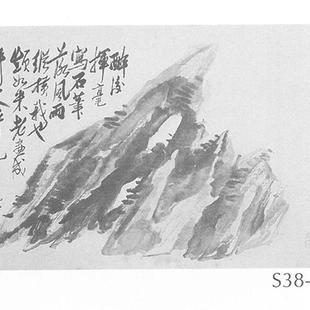 醉後
揮毫
寫石筆
落風雨
縱橫我也
顛如米老畫成
S38-